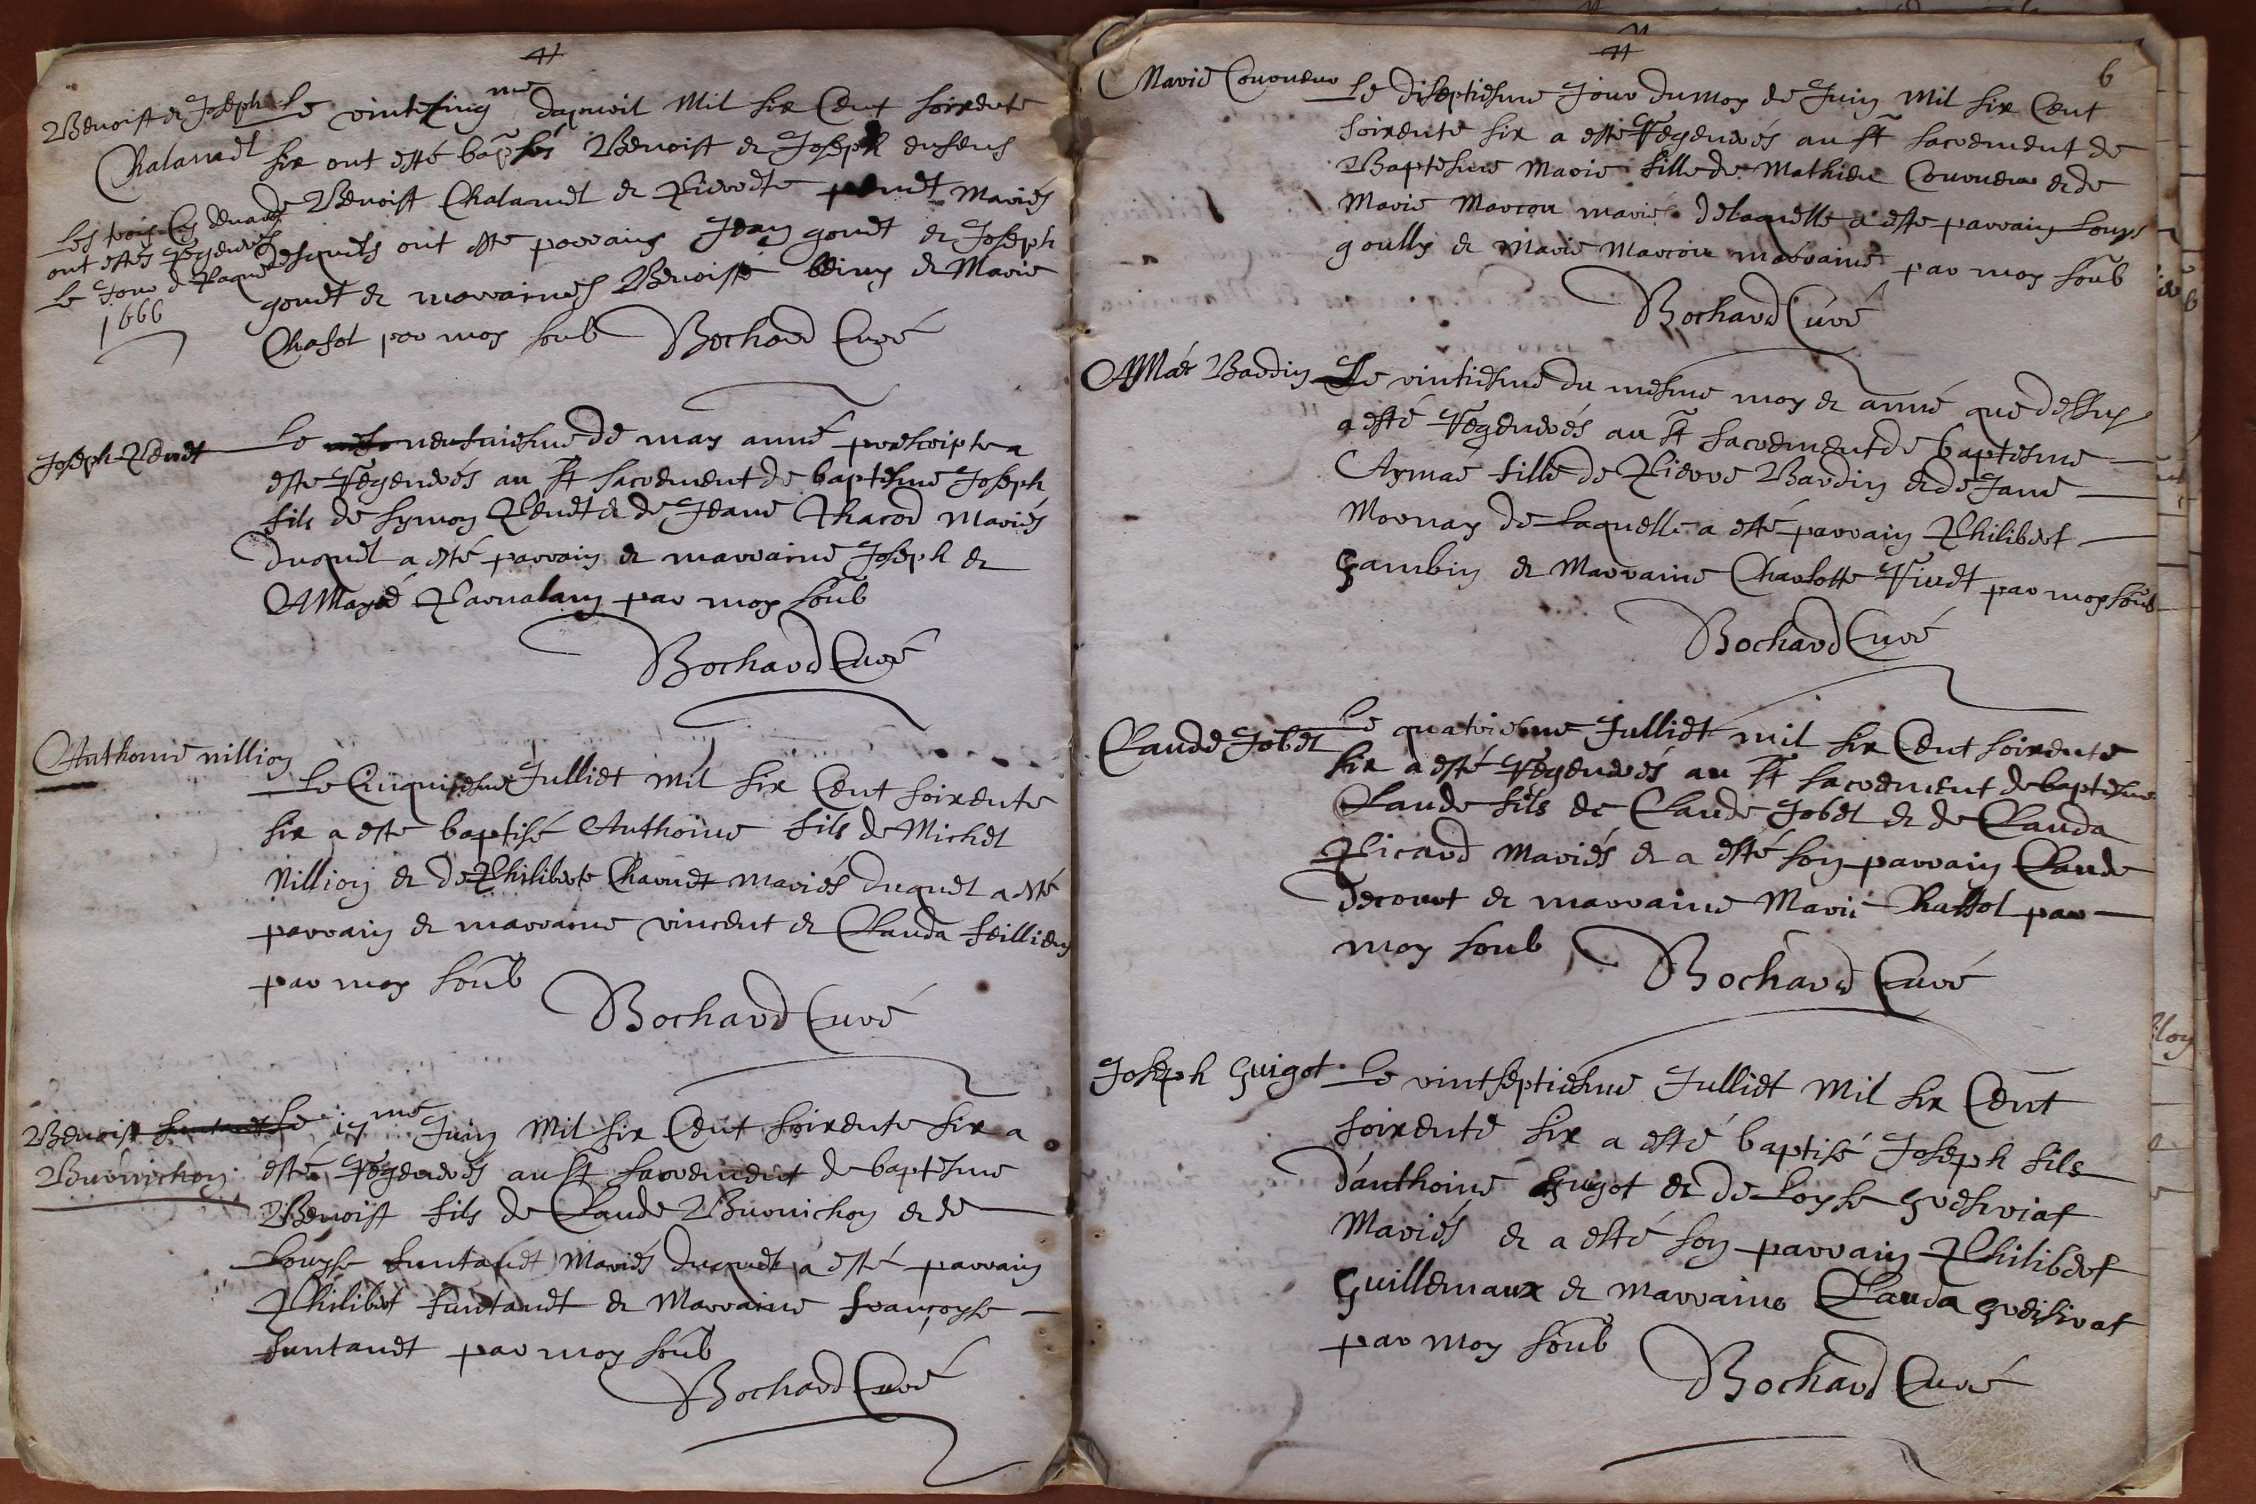 Benoist et Joseph
Chalandet
Les trois cy devant
ont estés regenerés
le Jour de Paque
1666
Le vintcinq me dapvril Mil six Cent soixente
six ont esté bap sés Benoist et Joseph enfens
de Benoist Chalandet et Pierrette Mariés
desquels ont esté parrains Jean gonet et Joseph
gonet et marraines Benoiste et Marie
Chasot par moy soub Bochard Curé
Joseph Penet
Le neufviesme de may anné prescripte a
esté Regenerés au St sacrement de baptesme Joseph
fils de Symon Penet et de Jeane Mariés
duquel a esté parrain et marraine Joseph et
par moy soub
Bochard Curé
Anthoine nillion
Le Cinquiesme Julliet Mil six Cent soixente
six a esté baptisé Anthoine fils de Michel
Nillion et de Philiberte Charnet mariés duquel a esté
parrain et marraine vincent et Clauda
par moy soub
Bochard Curé
Benoist
Burnichon
Le 17 me Juin Mil six Cent soixente six a
esté Regenerés au St sacrement de baptesme
Benoist fils de Claude Burnichon et de
Louyse Mariés duquel a esté parrain
Philibert et Marraine francoyse
par moy soub
Bochard Curé
6
Marie Couvreur
Le diseptiesme Jour du moy de Juin Mil six Cent
soixente six a esté Regenerés au St sacrement de
Baptesme Marie fille de Mathieu Couvreur et de
Marie Marcou mariés delaquelle a esté parrain Louys
goully et Marie Marcou marraine par moy soub
Bochard Curé
AMáe Bardin
Le vintiesme du mesme moy et anné que dessus
a esté Regenerés au St sacrement de baptesme
Aymaé fille de Pierre Bardin et de Jane
Mornay de Laquelle a esté parrain Philibert
Gambin et Marraine Charlotte Vivet par moy soub
Bochard Curé
Claude Jobet
Le quatriesme Julliet mil six Cent soixente
six a esté Regenerés au St sacrement de baptesme
Claude fils de Claude Jobet et de Clauda
Picard Mariés et a esté son parrain Claude
decourt et marraine Marie Chassot par
moy soub
Bochard Curé
Joseph Guigot
Le vintseptiesme Julliet Mil six Cent
soixente six a esté baptisé Joseph fils
d'anthoine Guigot et de Loyse
Mariés et a esté son parrain Philibert
Guillemaux et marraine Clauda
par moy soub
Bochard Curé